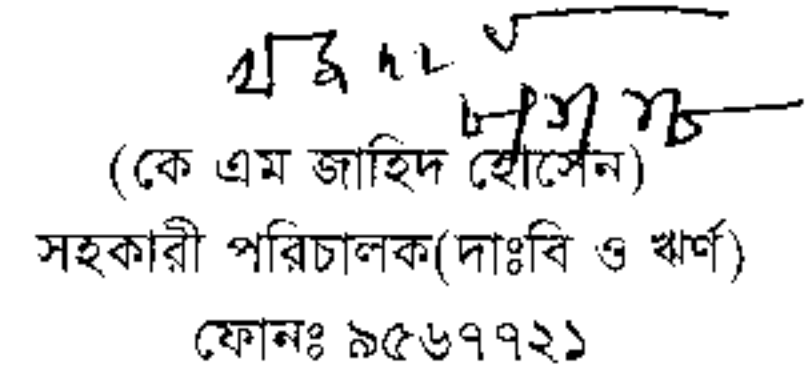 (কে এম জাহিদ হোসেন)
সহকারী পরিচালক(দাঃবি ও ঋর্ণ)
ফোনঃ ৯৫৬৭৭২১